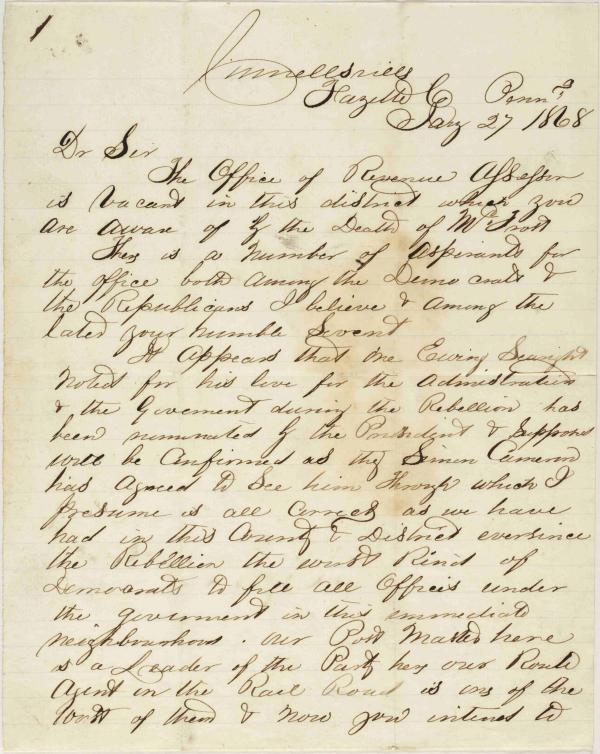 1
Connellsville
Fayette Co Penna
Jany 27 1868
Dr Sir
The Office of Revenue Assessor
is vacant in this district which you
are aware of by the Death of Mr Frost
Ther is a Number of Aspirants for
the office both among the Democrats &
the Republicans I believe & Among the
later your humble Servent
It Appears that one Ewing Searight
Noted for his love for the Administration
& the Goverment during the Rebellion has
been nominated by the President &
will be Confirmed as the Simon Cameron
has Agreed to See him through which I
presume is all Correct as we have
had in this County & District eversince
the Rebellion the worst Kind of
Democrats to fill all Offices under
the goverment in this immediate
neighbourhood. Our Post Master here
is a Leader of the Party here our Route
Agent in the Rail Road is one of the
worst of them & Now you intend to